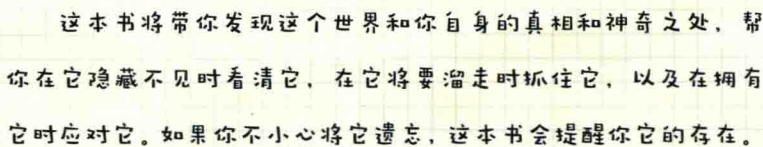 这本书将带你发现这个世界和你自身的真相和神奇之处，帮
你在它隐藏不见时看清它，在它将要溜走时抓住它，以及在拥有
它时应对它。如果你不小心将它遗忘，这本书会提醒你它的存在。